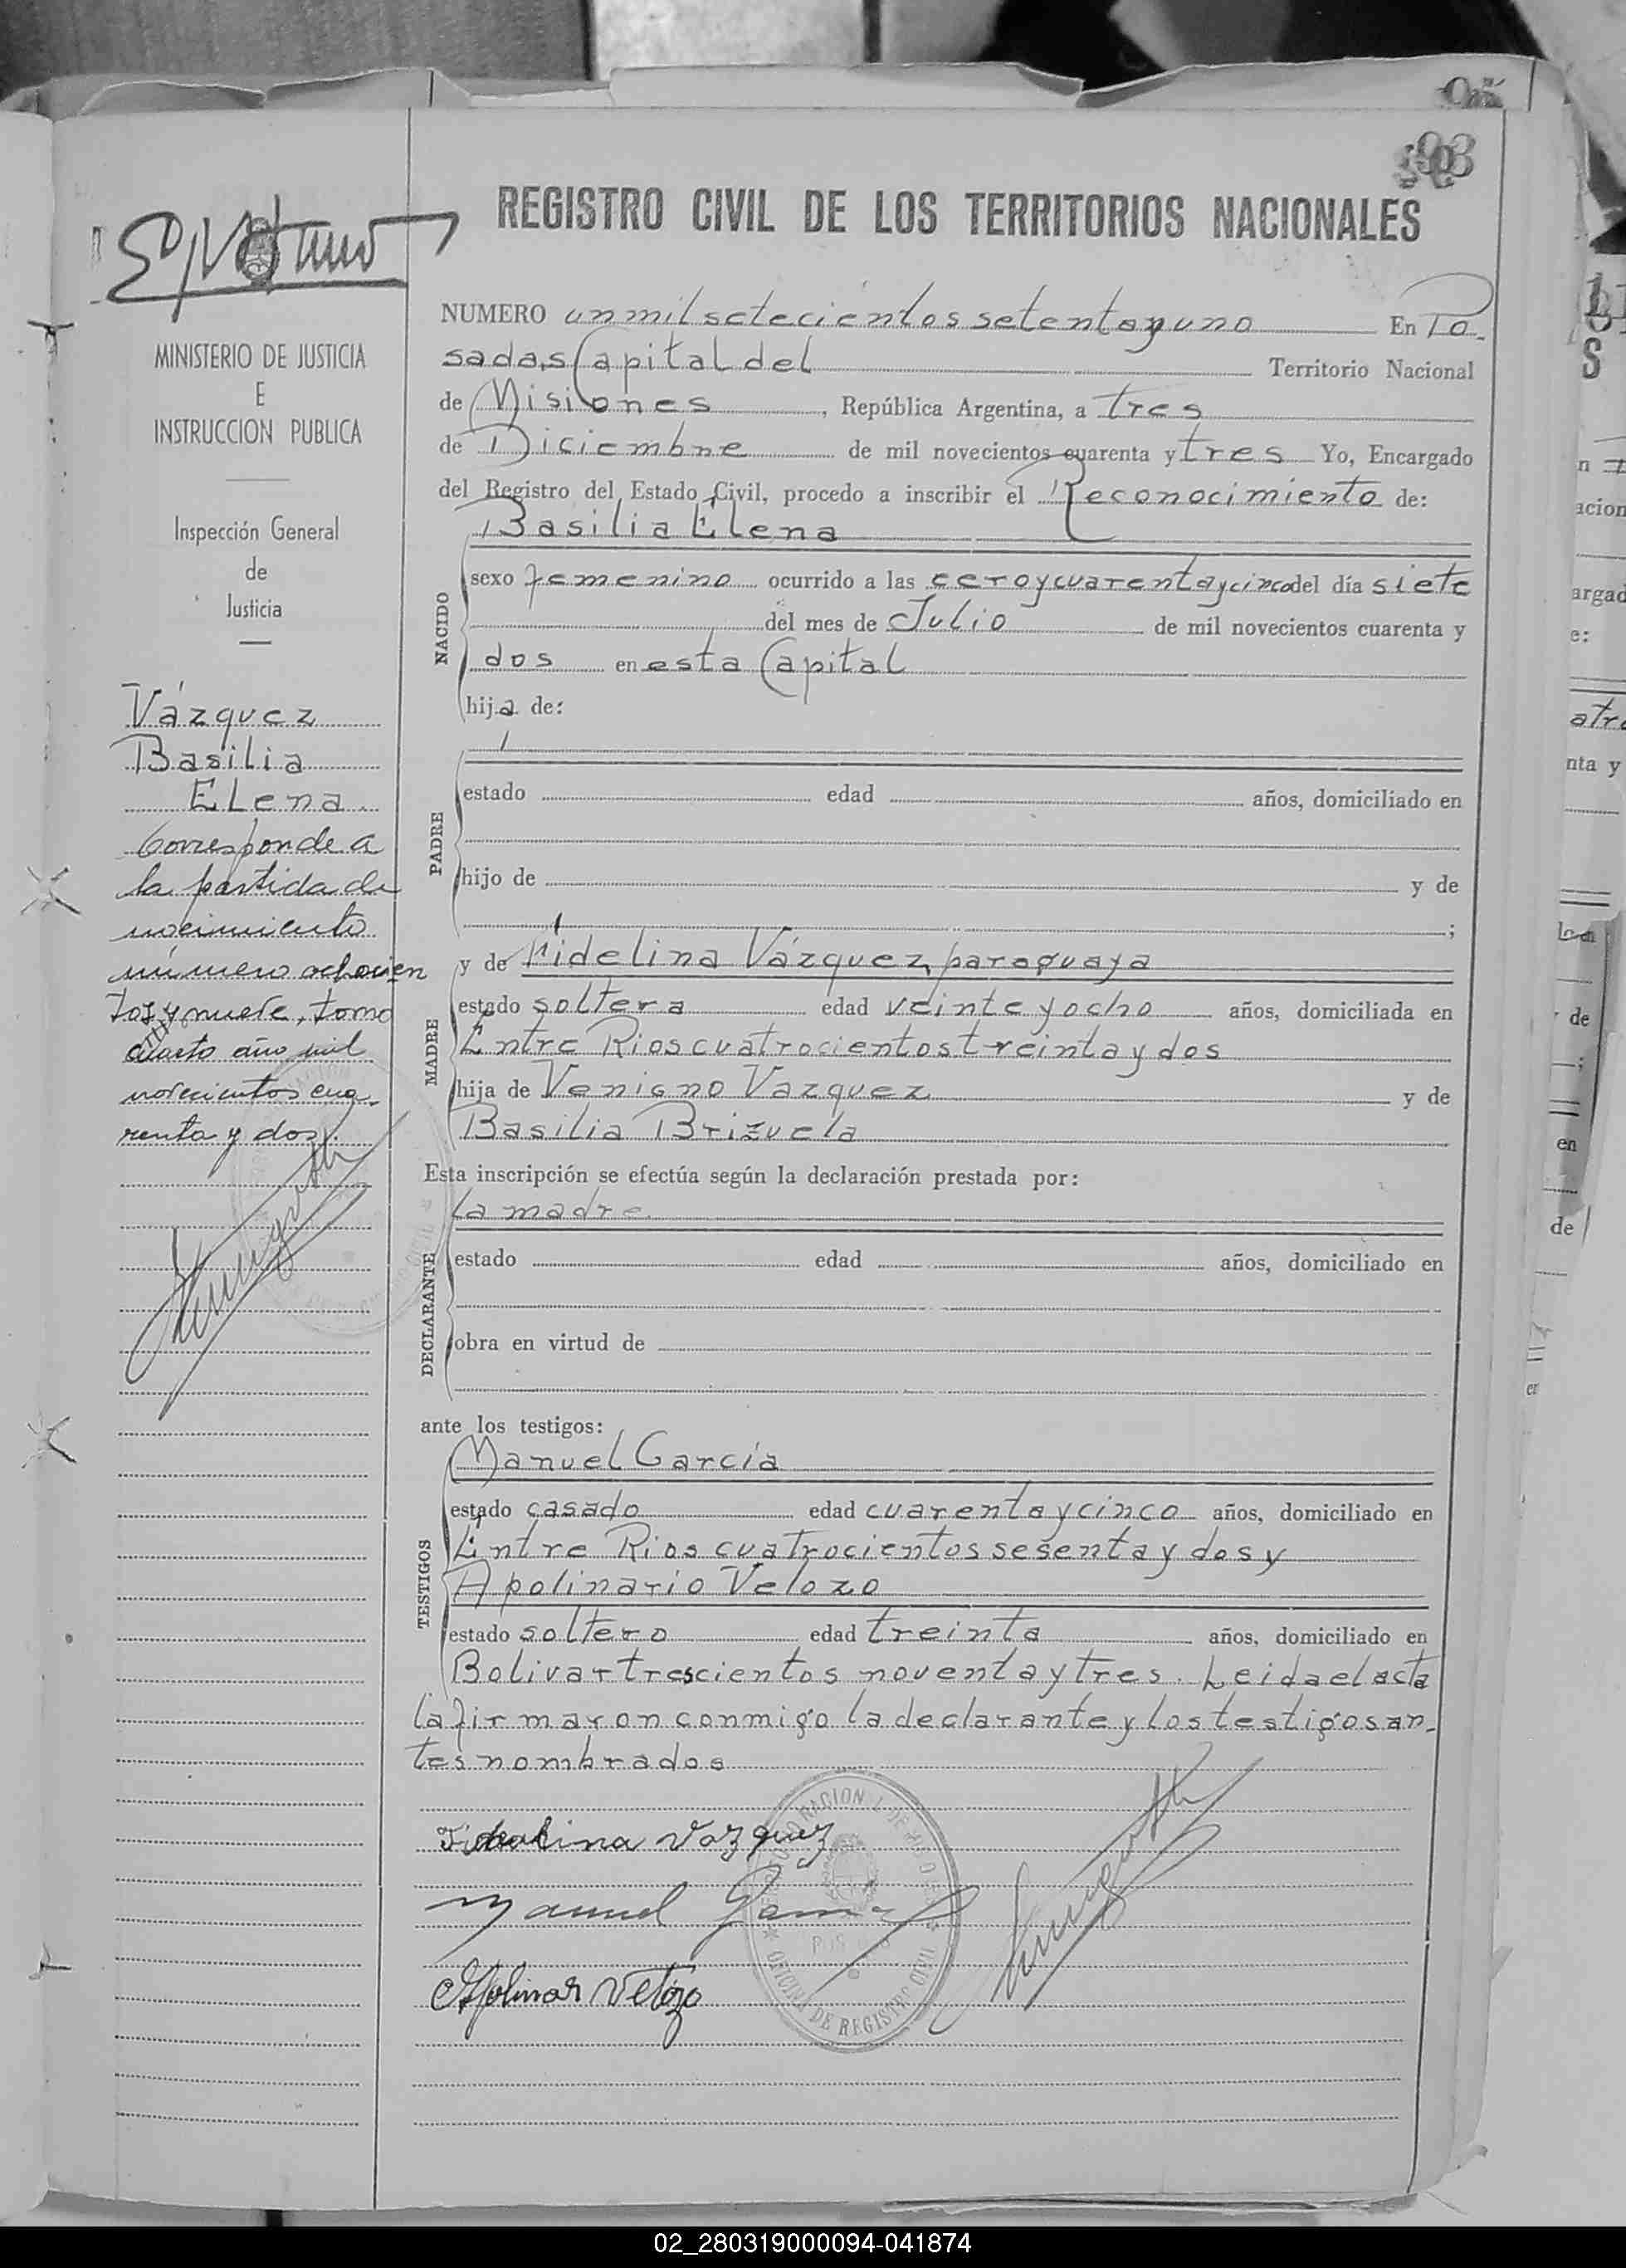 REGISTRO CIVIL DE LOS TERRITORIOS NACIONALES
MINISTERIO DE JUSTICIA
E
INSTRUCCION PUBLICA
Inspección General
de
Justicia
Vázquez
Basilia
Elena
Corresponde a
la partida de
nacimiento
número ochocien
tos y nueve, tomo
cuarto año mil
novecientos cua
renta y dos.
NUMERO un mil setecientos setenta y uno En Po
sadas Capital del Territorio Nacional
de Misiones, República Argentina, a tres
de Diciembre de mil novecientos cuarenta y tres Yo, Encargado
del Registro del Estado Civil, procedo a inscribir el Reconocimiento de:
Basilia Elena
NACIDO
sexo femenino ocurrido a las cero y cuarenta y cinco del día siete
del mes de Julio de mil novecientos cuarenta y
dos en esta Capital
hija de:
PADRE
estado edad años, domiciliado en
hijo de y de
;
y de Fidelina Vázquez, paraguaya
MADRE
estado soltera edad veinte y ocho años, domiciliada en
Entre Rios cuatrocientos treinta y dos
hija de Venigno Vazquez y de
Basilia Brizuela
Esta inscripción se efectúa según la declaración prestada por:
la madre
DECLARANTE
estado edad años, domiciliado en
obra en virtud de
ante los testigos:
Manuel García
TESTIGOS
estado casado edad cuarenta y cinco años, domiciliado en
Entre Rios cuatrocientos sesenta y dos y
Apolinario Velozo
estado soltero edad treinta años, domiciliado en
Bolivar trescientos noventa y tres. Leida el acta
la firmaron conmigo la declarante y los testigos an-
tes nombrados
Fidelina Vazquez
Manuel Garcia
Apolinar Velozo
OFICINA DE REGISTRO CIVIL
02_280319000094-041874